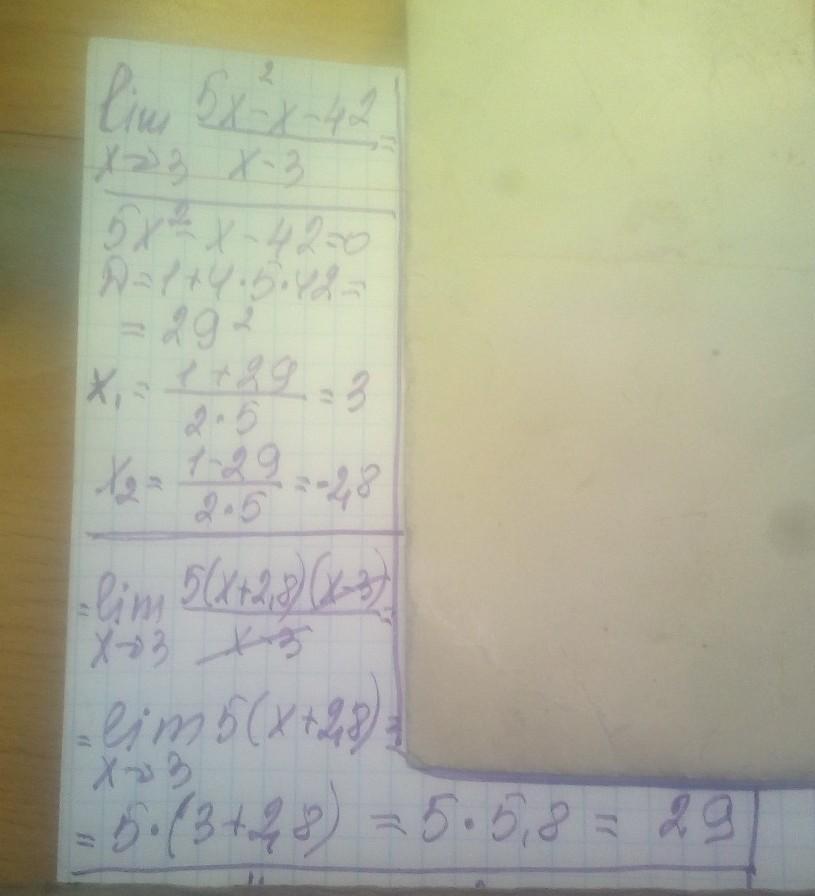 lim 5x²-x-42 / x-3 =
x→3
5x²-x-42=0
D=1+4·5·42=
= 29²
x₁ = 1+29 / 2·5 = 3
x₂ = 1-29 / 2·5 = -2,8
= lim 5(x+2,8)(x-3) / x-3 =
x→3
= lim 5(x+2,8) =
x→3
= 5·(3+2,8) = 5·5,8 = 29